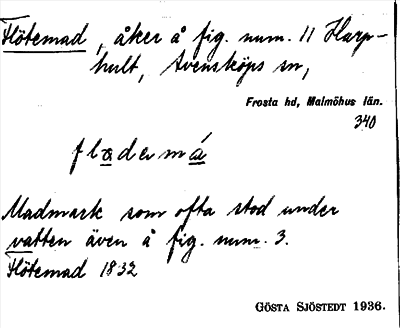 Flötemad, åker å fig. num. 11 Harp-
hult, Svensköps sn,
Frosta hd, Malmöhus län.
340
flǫdermá
Madmark som ofta stod under
vatten även å fig. num. 3.
Flötemad 1832
GÖSTA SJÖSTEDT 1936.